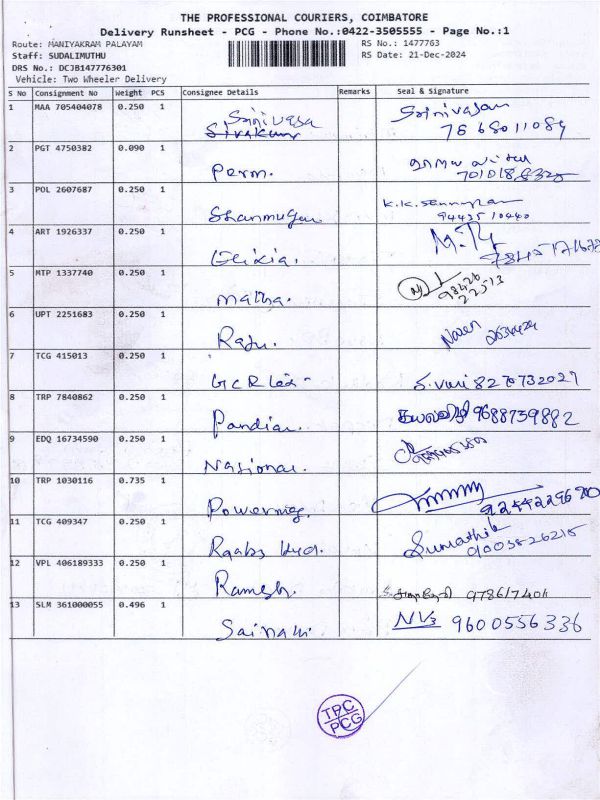 THE PROFESSIONAL COURIERS, COIMBATORE
Delivery Runsheet - PCG - Phone No.:0422-3505555 - Page No.:1
Route: MANIYAKRAM PALAYAM
RS No.: 1477763
Staff: SUDALIMUTHU
RS Date: 21-Dec-2024
DRS No.: DCJB147776301
Vehicle: Two Wheeler Delivery
S No Consignment No Weight PCS Consignee Details Remarks Seal & Signature
1 MAA 705404078 0.250 1 Srinivasa Srinivasan
Sivakumar 7868011089
2 PGT 4750382 0.090 1 Perm.
3 POL 2607687 0.250 1 Shanmugam
9443510440
4 ART 1926337 0.250 1
5 MTP 1337740 0.250 1 Matha. 98426
22513
6 UPT 2251683 0.250 1 Raju.
7 TCG 415013 0.250 1 8270732027
8 TRP 7840862 0.250 1 Pandian 9688739882
9 EDQ 16734590 0.250 1 National
10 TRP 1030116 0.735 1 Powermag.
11 TCG 409347 0.250 1 Sumathi
9003826215
12 VPL 406189333 0.250 1 Ramesh.
13 SLM 361000055 0.496 1 9600556336
TPC
PCG